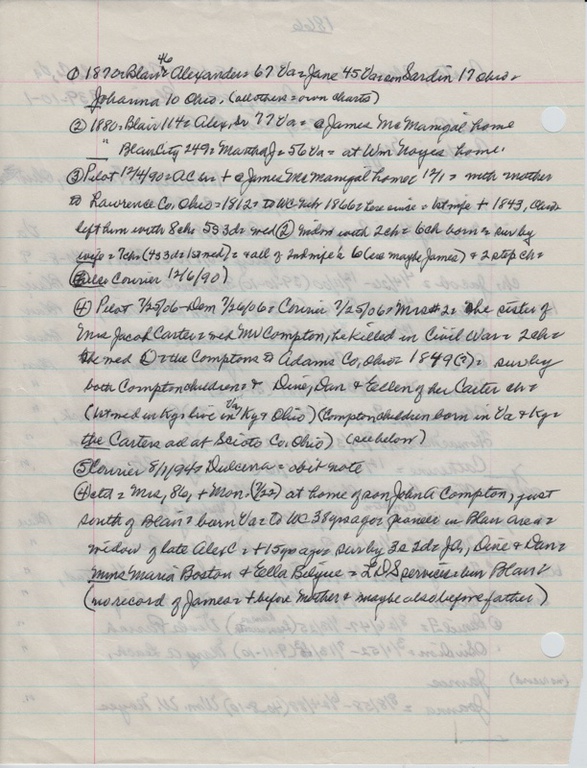 46
① 1870=Blair= Alexander= 67 Va= Jane 45 Va= con Sardin 17 Ohio=
Johanna 10 Ohio. (all others = own charts)
② 1880= Blair 114= Alex, Sr 77 Va= @ James McManigal home
" Blair City 249= Martha J= 56 Va= at Wm Noyes home.
③ Pilot 12/4/90= AC sr + @ James McManigal home 12/1= with mother
to Lawrence Co, Ohio= 1812= to WC Feb 1866= here since= 1st wife + 1843,
left him with 8ch= 5s 3d= wed ② widow with 2ch= 6ch born= sur by
wife= 7ch= (4s 3d= 1st wed)= & all of 2nd wife's 6 (less maybe James) & 2 step ch=
(also Courier 12/6/90)
④ Pilot 7/25/06= Dem 7/26/06= Courier 7/25/06= Mrs #2= she sister of
Mrs Jacob Carter= wed Mr Compton, he killed in Civil War= 2ch=
she wed ① = the Comptons to Adams Co, Ohio= 1849(?)= sur by
both Compton children= & Dine, Dan & Eellen of her Carter ch=
(1st wed in Ky= live in Va, Ky & Ohio) (Compton children born in Va & Ky=
the Carters all at Scioto Co, Ohio) (see below)
⑤ Courier 8/1/94= Dulcena= obit note
④ctd= Mrs, 86, + Mon. (7/23) at home of son John A Compton, just
south of Blair= born Va= to WC 38 yrs ago= pioneer in Blair area=
widow of late Alex C= + 15 yrs ago= sur by 3s 2d= JA, Dine & Dan=
Mmes Maria Boston & Ella = LDS services= bur Blair
(no record of James= + before mother & maybe also before father)